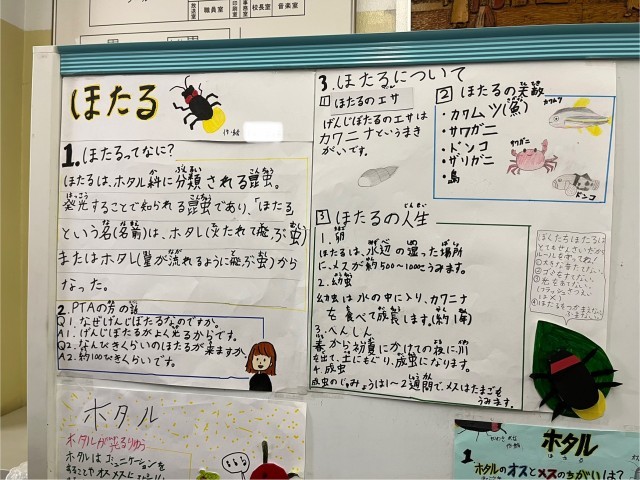 放送室
職員室
印刷室
事務室
校長室
音楽室
ほたる
1. ほたるってなに?
ほたるは、ホタル科に分類される昆虫。
発光することで知られる昆虫であり、「ほたる」
という名(名前)は、ホタレ(火たれて飛ぶ虫)
またはホタレ(星が流れるように飛ぶ虫)から
なった。
2. PTAの方の話
Q1. なぜげんじぼたるなのですか。
A1. げんじぼたるが大きく光るからです。
Q2. なんびきくらいのほたるが来ますか
A2. 約100ぴきくらいです。
3. ほたるについて
1 ほたるのエサ
げんじぼたるのエサは
カワニナというまき
がいです。
2 ほたるの天敵
・カワムツ(魚)
・サワガニ
・ドンコ
・ザリガニ
・鳥
カワムツ
サワガニ
ドンコ
3 ほたるの人生
1. 卵
ほたるは、水辺の湿った場所
に、メスが約500〜1000こうみます。
2. 幼虫
幼虫は水の中に入り、カワニナ
を食べて成長します。(約1年)
3. へんしん
春から初夏にかけての夜に、川
を出て、土にもぐり、成虫になります。
4. 成虫
成虫のじゅみょうは1〜2週間で、メスはたまごも
うみます。
ぼくたちほたるは
ルールを守ってね!
ホタル
ホタルが光るりゆう
ホタルはコミュニケーションを
ホタル
1 ホタルのオスとメスのちがいは?